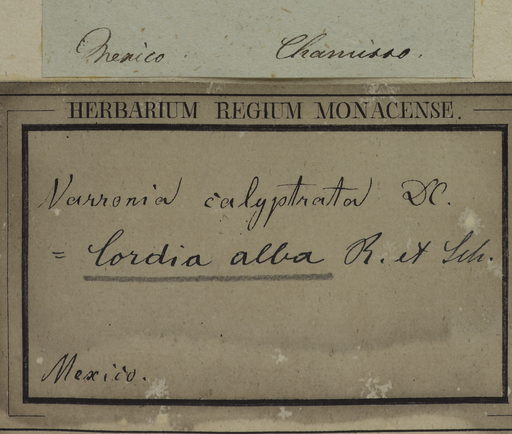 Mexico. Chamisso.
HERBARIUM REGIUM MONACENSE.
Varronia calyptrata DC.
= Cordia alba R. et Sch.
Mexico.